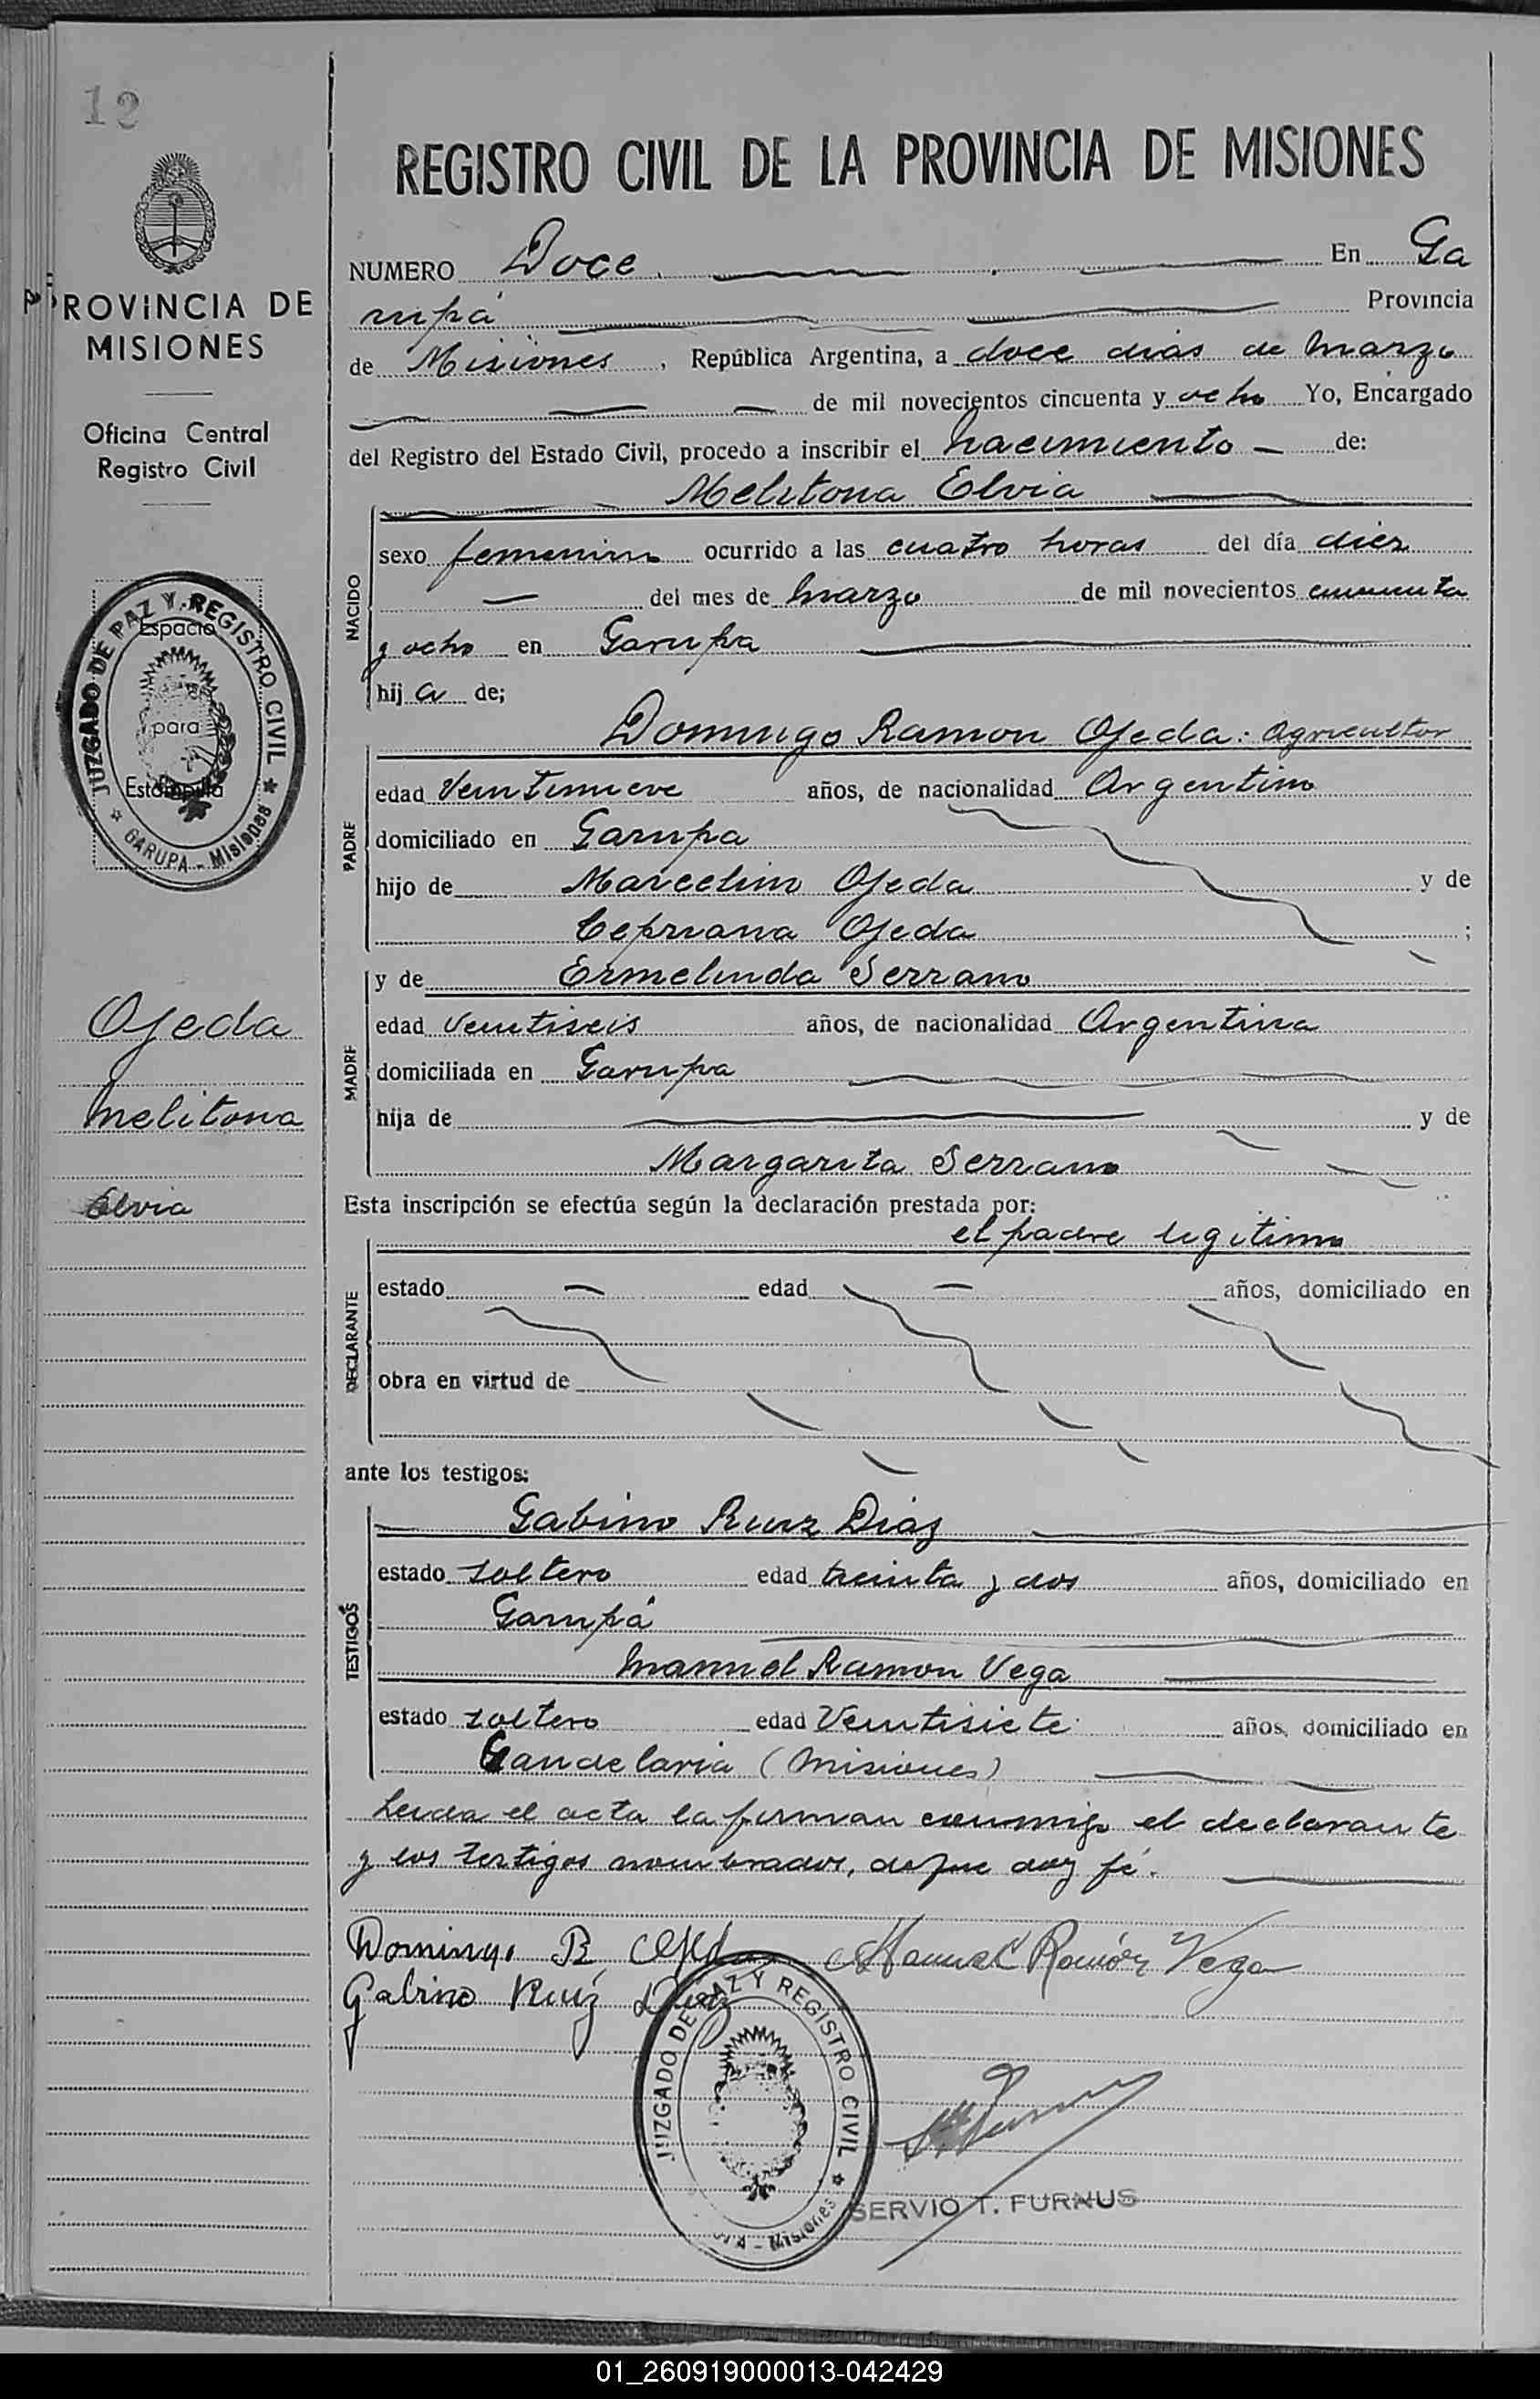 12
PROVINCIA DE
MISIONES
Oficina Central
Registro Civil
JUZGADO DE PAZ Y REGISTRO CIVIL
GARUPA - Misiones
Espacio
para
Estampilla
Ojeda
Melitona
Elvia
REGISTRO CIVIL DE LA PROVINCIA DE MISIONES
NUMERO Doce. En Ga
rupá Provincia
de Misiones, República Argentina, a doce dias de Marzo
de mil novecientos cincuenta y ocho Yo, Encargado
del Registro del Estado Civil, procedo a inscribir el nacimiento de:
Melitona Elvia
NACIDO
sexo femenino ocurrido a las cuatro horas del día diez
del mes de Marzo de mil novecientos cincuenta
y ocho en Garupa
hij a de;
Domingo Ramon Ojeda. Agricultor
PADRE
edad Veintinueve años, de nacionalidad Argentino
domiciliado en Garupa
hijo de Marcelino Ojeda y de
Cepriana Ojeda ;
MADRE
y de Ermelinda Serrano
edad Veintiseis años, de nacionalidad Argentina
domiciliada en Garupa
hija de y de
Margarita Serrano
Esta inscripción se efectúa según la declaración prestada por:
el padre legitimo
DECLARANTE
estado edad años, domiciliado en
obra en virtud de
ante los testigos:
Gabino Ruiz Diaz
TESTIGOS
estado soltero edad treinta y dos años, domiciliado en
Garupá
Manuel Ramon Vega
estado soltero edad Veintisiete años, domiciliado en
Candelaria (Misiones)
Leida el acta la firman conmigo el declarante
y los testigos nombrados, de que doy fé.
Domingo R Ojeda Manuel Ramón Vega
Gabino Ruiz Diaz
JUZGADO DE PAZ Y REGISTRO CIVIL
Misiones
SERVIO T. FURNUS
01_260919000013-042429